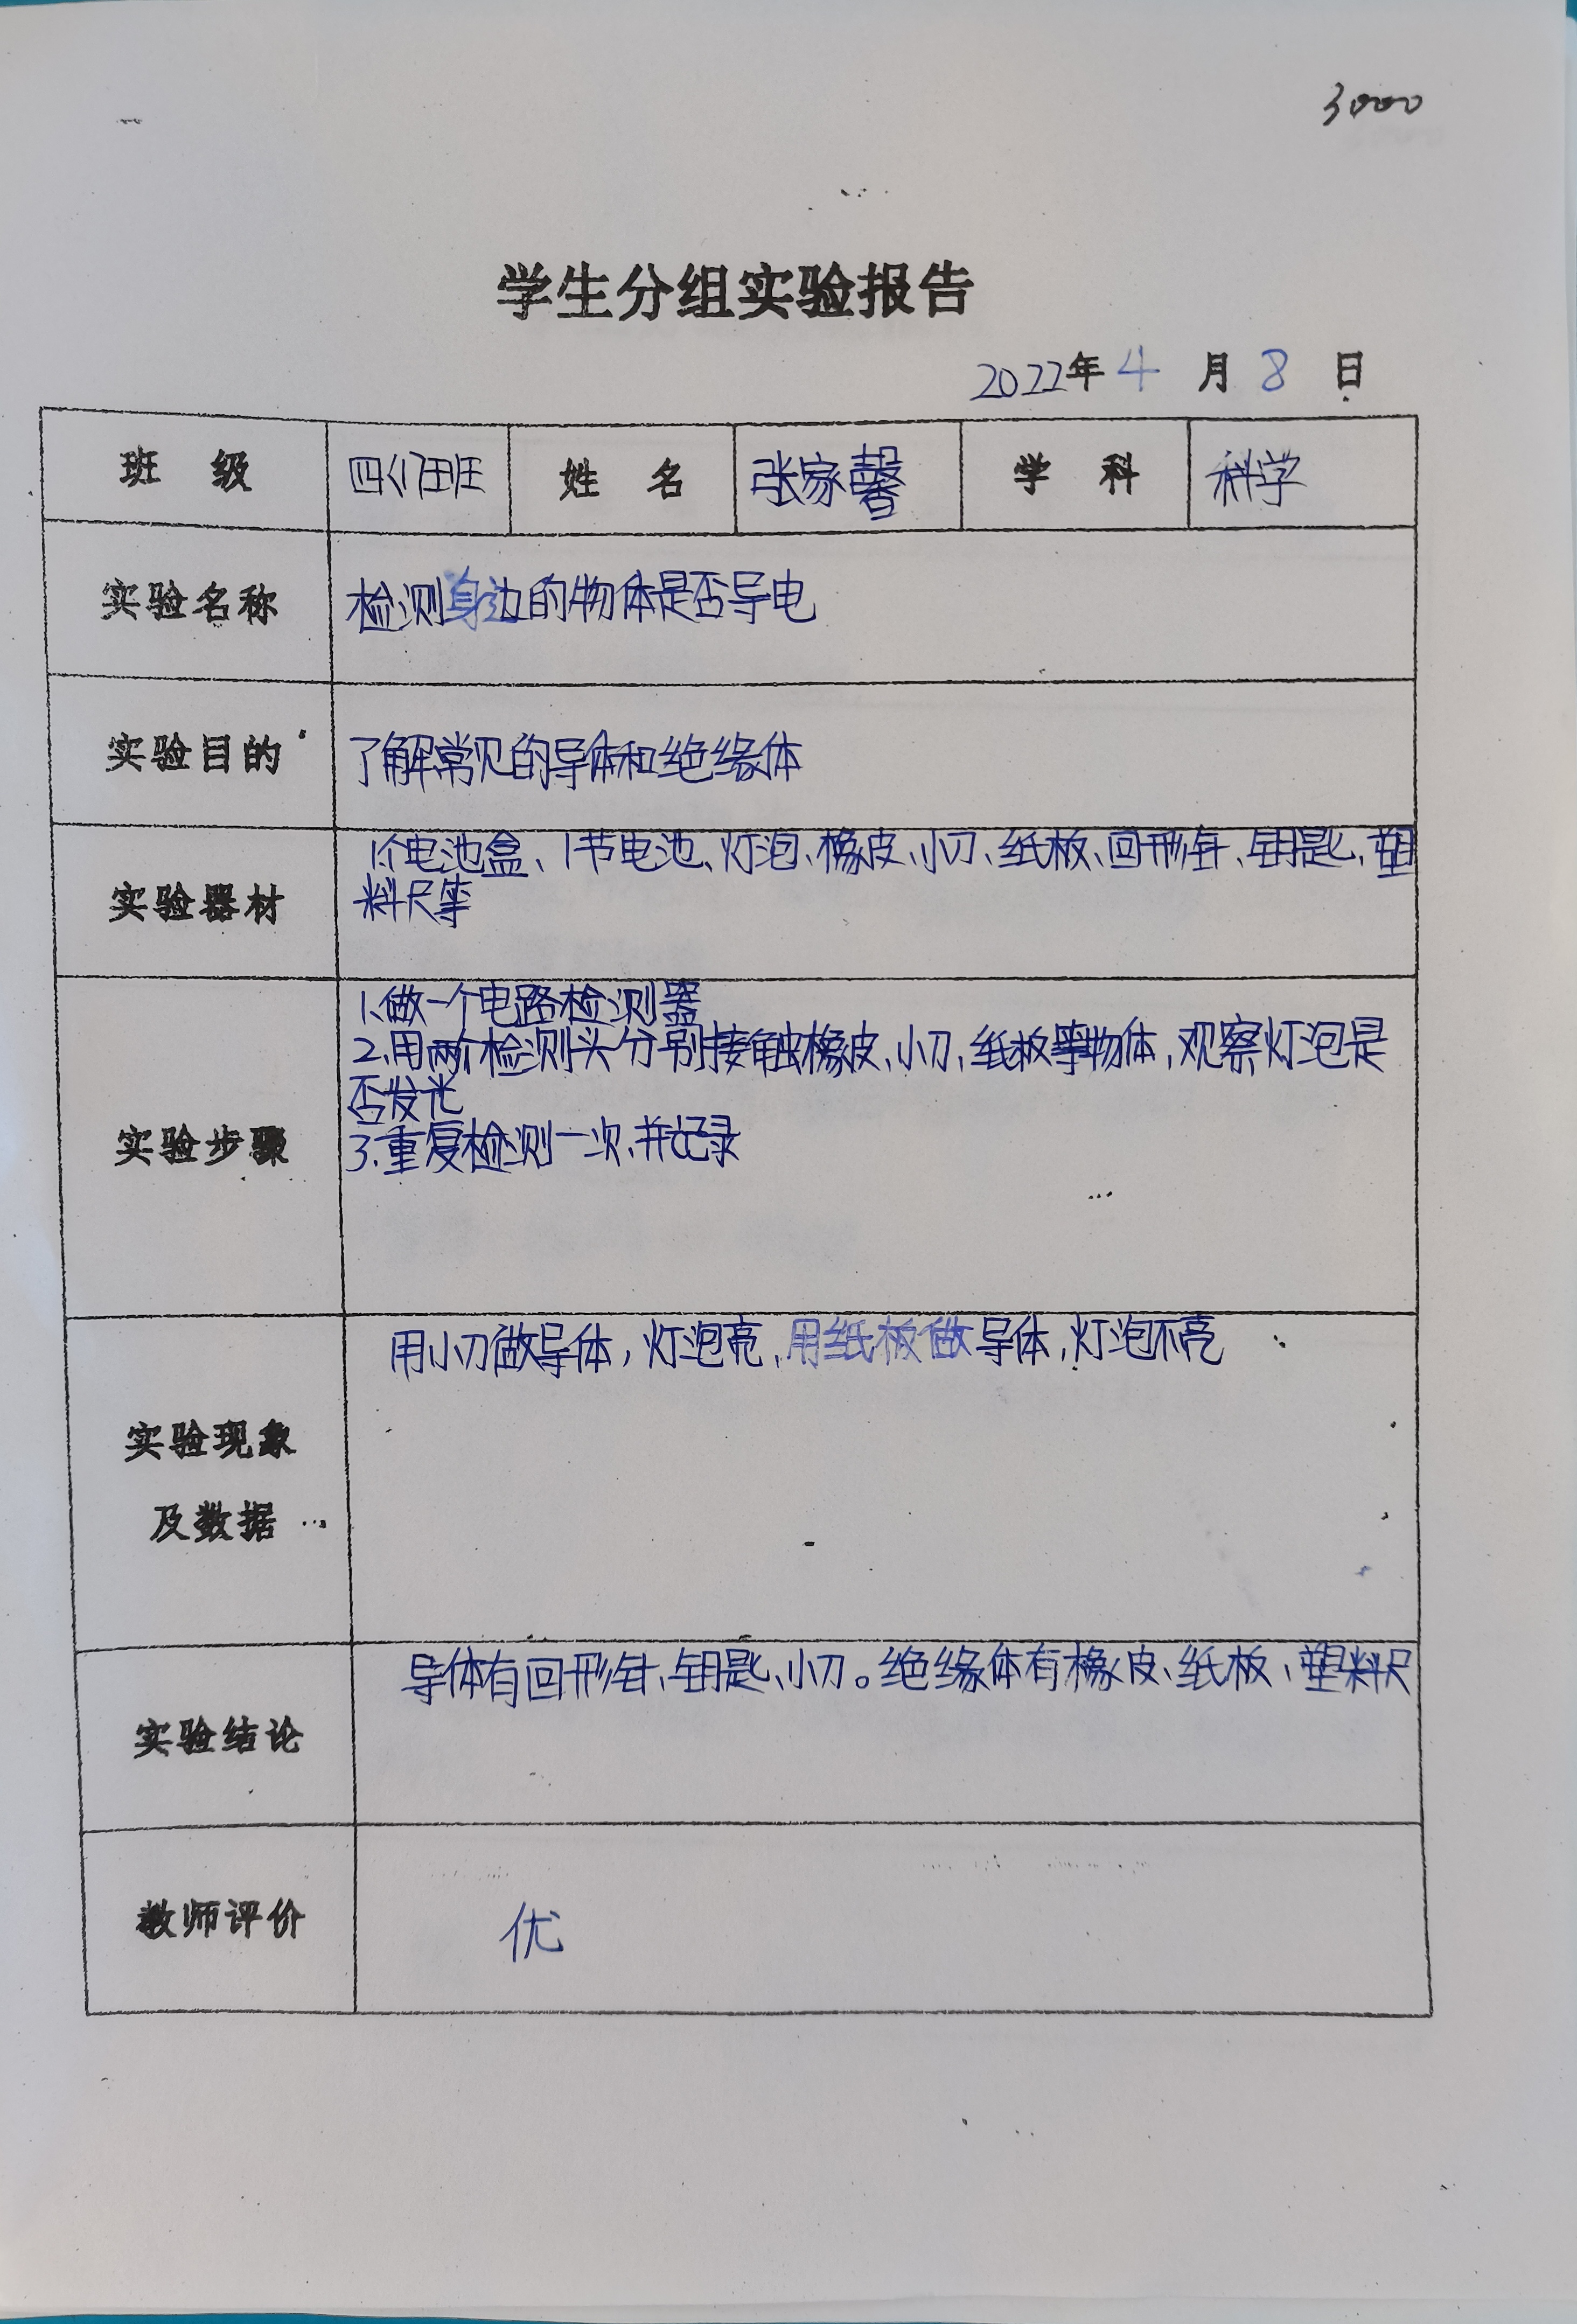 3000
学生分组实验报告
2022年 4 月 8 日
班 级 四(1)班 姓 名 张家馨 学 科 科学
实验名称 检测身边的物体是否导电
实验目的 了解常见的导体和绝缘体
实验器材 1个电池盒、1节电池、灯泡、橡皮、小刀、纸板、回形针、钥匙、塑
料尺等
实验步骤 1.做一个电路检测器
2.用两个检测头分别接触橡皮、小刀、纸板等物体,观察灯泡是
否发光
3.重复检测一次,并记录
实验现象
及数据
用小刀做导体,灯泡亮,用纸板做导体,灯泡不亮
实验结论 导体有回形针、钥匙、小刀。绝缘体有橡皮、纸板、塑料尺
教师评价 优